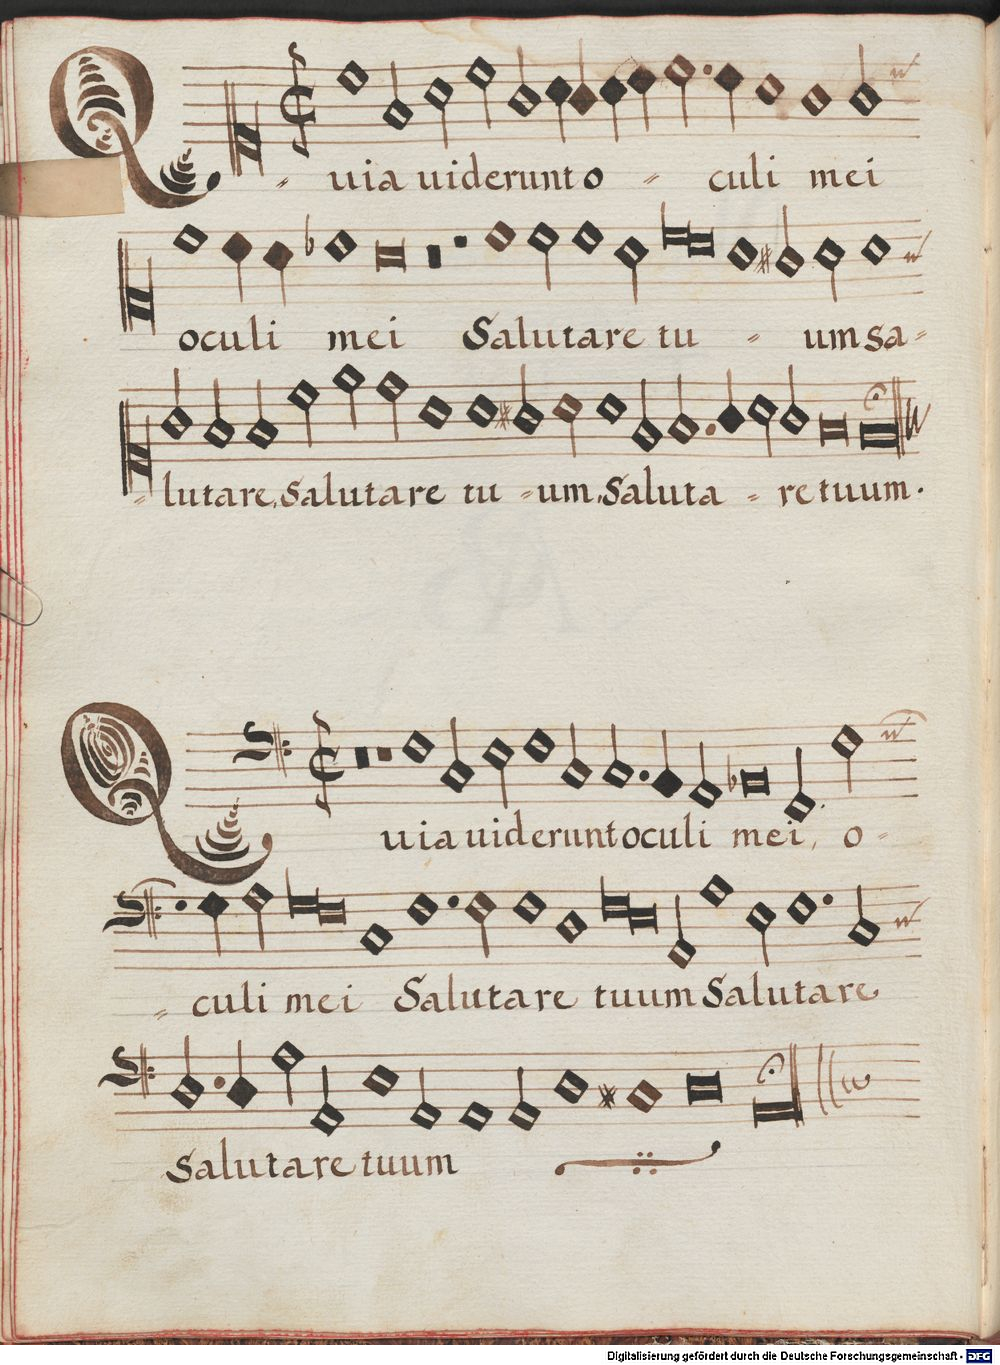 Quia uiderunt o - culi mei
oculi mei Salutare tu - um sa-
- lutare, Salutare tu - um, Saluta - re tuum.
Quia uiderunt oculi mei, o -
- culi mei Salutare tuum Salutare
Salutare tuum
Digitalisierung gefördert durch die Deutsche Forschungsgemeinschaft - DFG